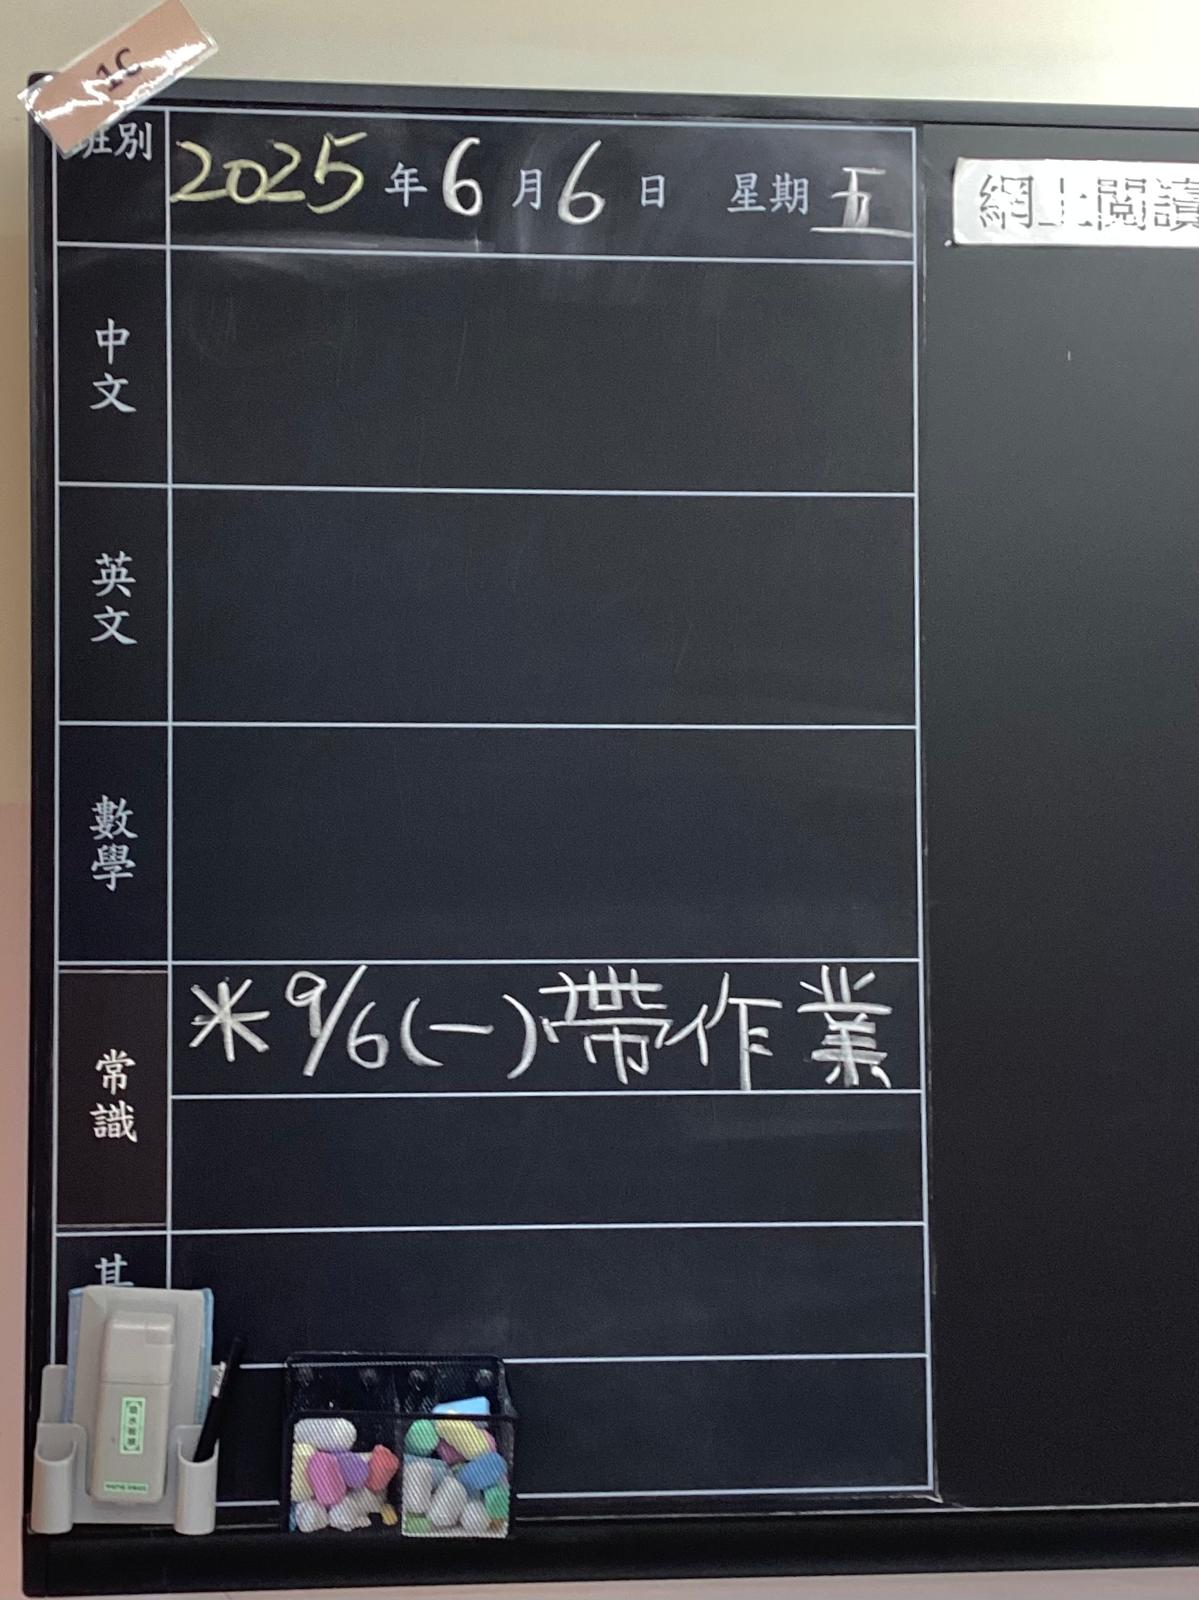 1C
班別
2025年6月6日 星期五
網上閱讀
中文
英文
數學
常識
※9/6(一)帶作業
其